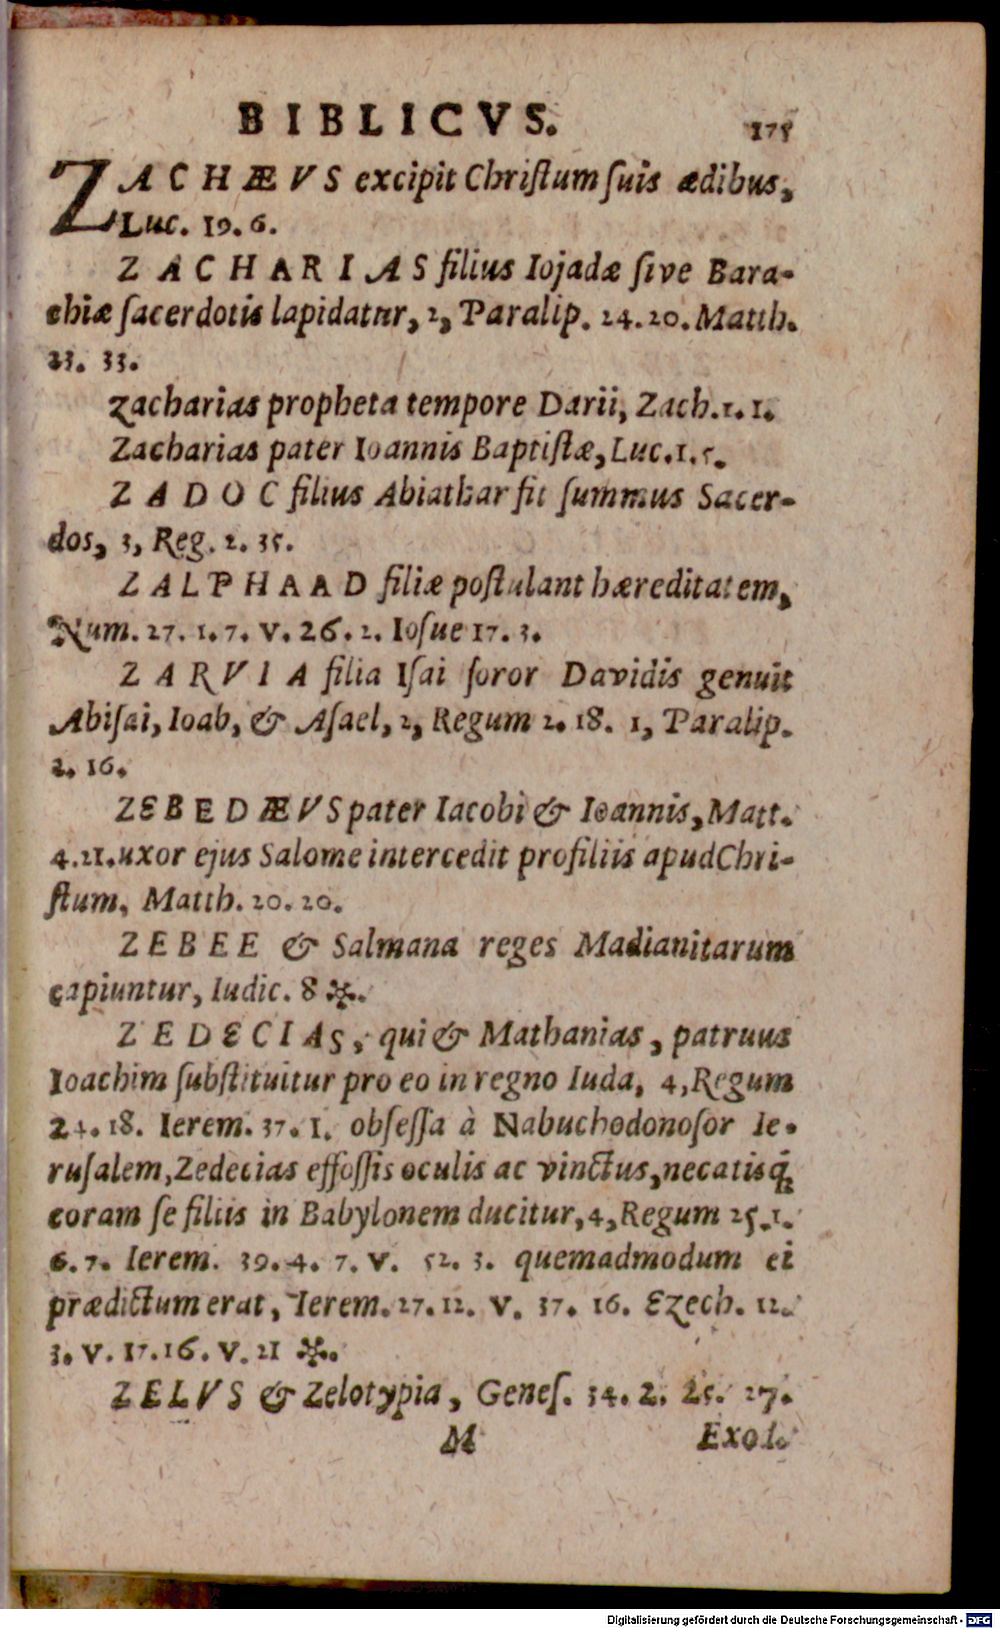 BIBLICVS. 175
ZACHÆVS excipit Chriſtum ſuis ædibus,
Luc. 19. 6.
ZACHARIAS filius Iojadæ ſive Bara-
chiæ ſacerdotis lapidatur, 2, Paralip. 24. 20. Matth.
23. 33.
Zacharias propheta tempore Darii, Zach. 1. 1.
Zacharias pater Ioannis Baptiſtæ, Luc. 1. 5.
ZADOC filius Abiathar fit ſummus Sacer-
dos, 3, Reg. 2. 35.
ZALPHAAD filiæ poſtulant hæreditatem,
Num. 27. 1. 7. v. 26. 2. Ioſue 17. 3.
ZARVIA filia Iſai ſoror Davidis genuit
Abiſai, Ioab, & Aſael, 2, Regum 2. 18. 1, Paralip.
2. 16.
ZEBEDÆVS pater Iacobi & Ioannis, Matt.
4. 21. uxor ejus Salome intercedit pro filiis apud Chri-
ſtum, Matth. 20. 20.
ZEBEE & Salmana reges Madianitarum
capiuntur, Iudic. 8 *.
ZEDECIAS, qui & Mathanias, patruus
Ioachim ſubſtituitur pro eo in regno Iuda, 4, Regum
24. 18. Ierem. 37. 1. obſeſſa à Nabuchodonoſor Ie-
ruſalem, Zedecias effoſſis oculis ac vinctus, necatisq́;
coram ſe filiis in Babylonem ducitur, 4, Regum 25. 1.
6. 7. Ierem. 39. 4. 7. v. 52. 3. quemadmodum ei
prædictum erat, Ierem. 27. 12. v. 37. 16. Ezech. 12.
3. v. 17. 16. v. 21 *.
ZELVS & Zelotypia, Geneſ. 34. 2. 25. 27.
M Exod.
Digitalisierung gefördert durch die Deutsche Forschungsgemeinschaft - DFG